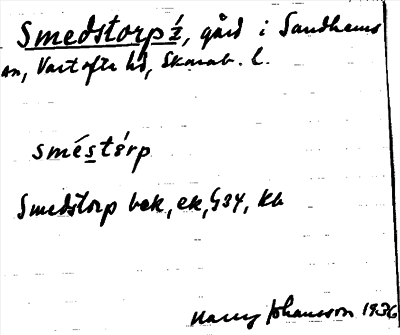 Smedstorp ź, gård i Sandhems
sn, Vartofta hd, Skarab. l.
sméstòrp
Smedstorp bek, ek, G34, kb
Harry Johansson 1936